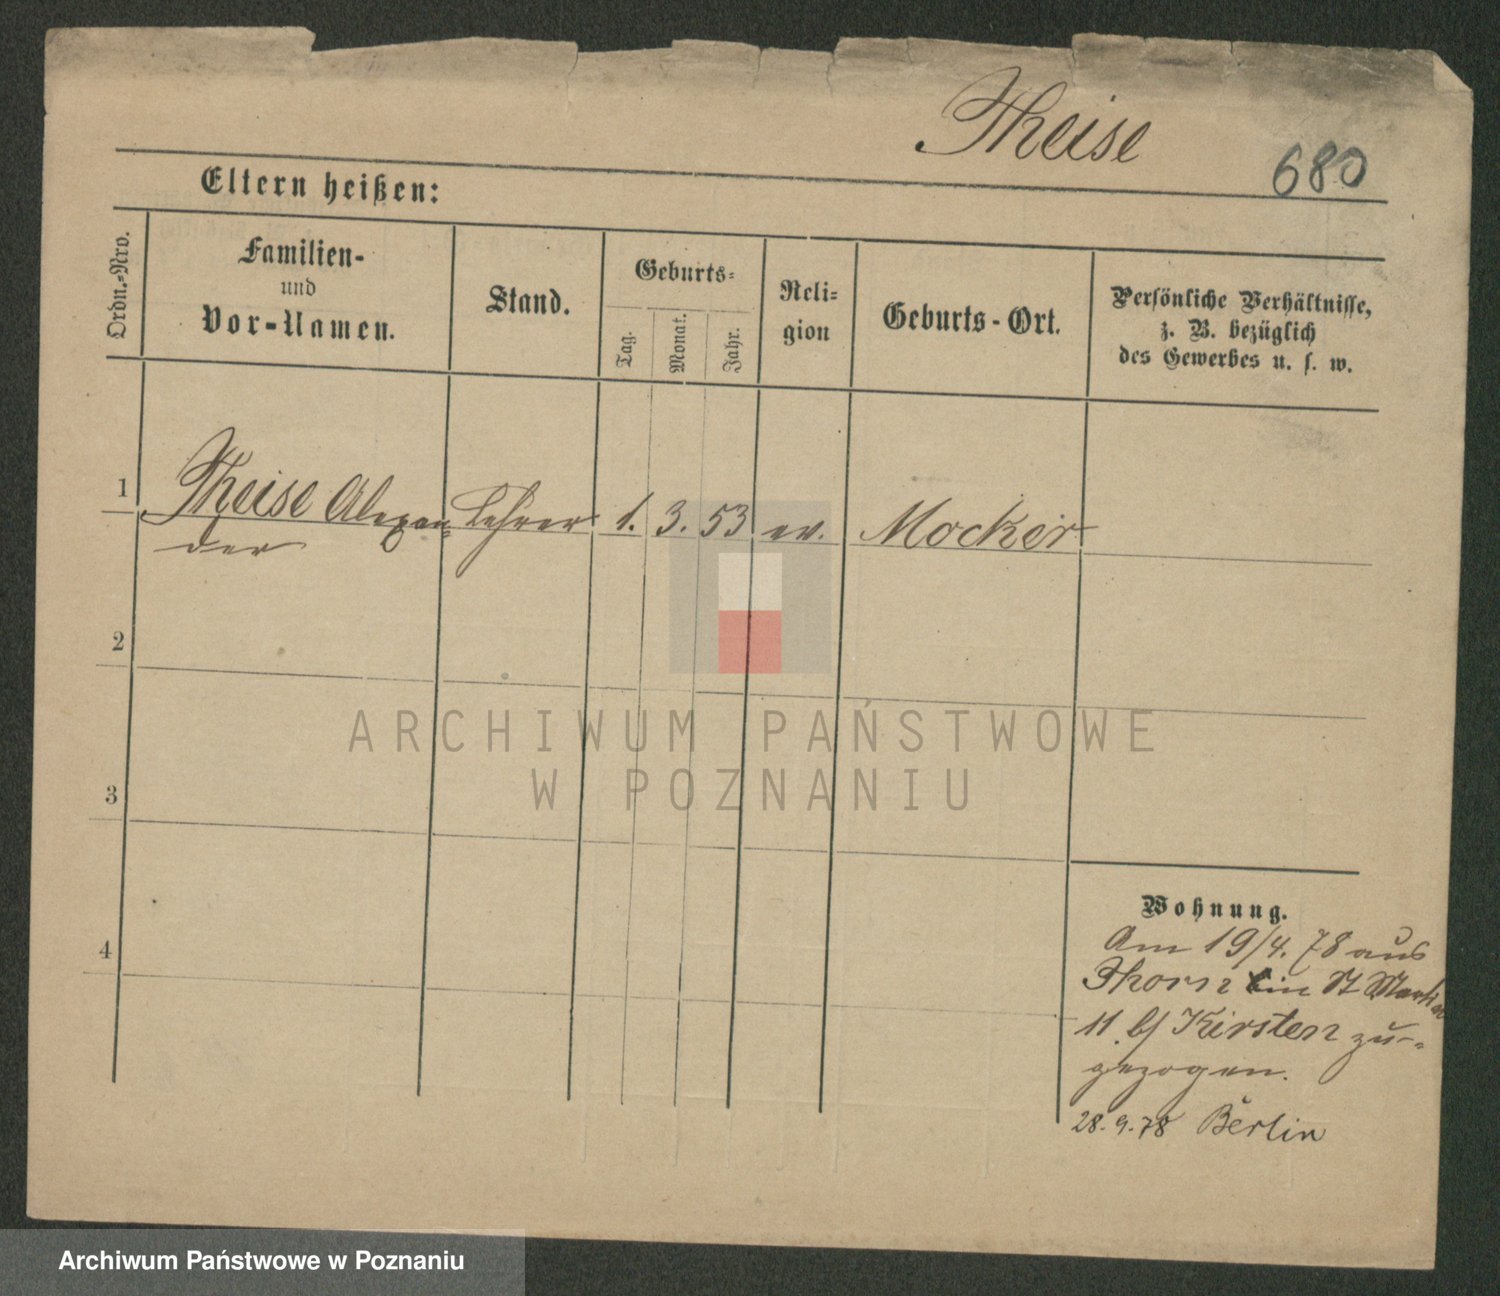 Theise
680
Eltern heißen:
Ordn.-Nro.
Familien-
und
Vor-Namen.
Stand.
Geburts-
Tag.
Monat.
Jahr.
Reli-
gion
Geburts-Ort.
Persönliche Verhältnisse,
z. B. bezüglich
des Gewerbes u. s. w.
1
Theise Alexan-
der
Lehrer
1.
3.
53
ev.
Mocker
2
3
4
Wohnung.
Am 19/4. 78 aus
Thorn in St Martin
11. b/ Kirsten zu-
gezogen.
28.9.78 Berlin
ARCHIWUM PAŃSTWOWE
W POZNANIU
Archiwum Państwowe w Poznaniu